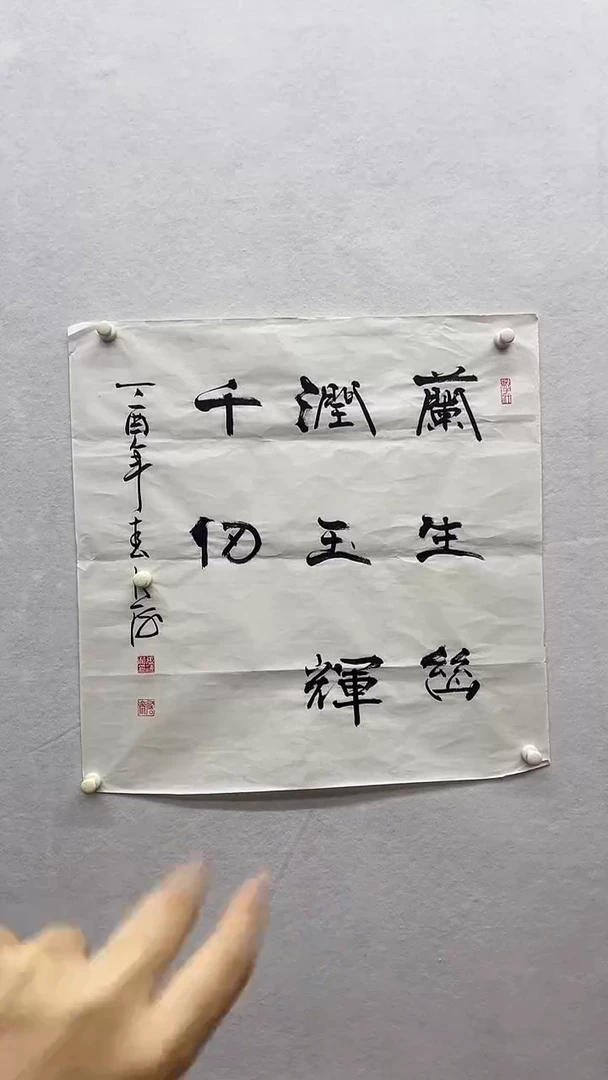 蘭生幽
澗玉輝
千仞
丁酉年春